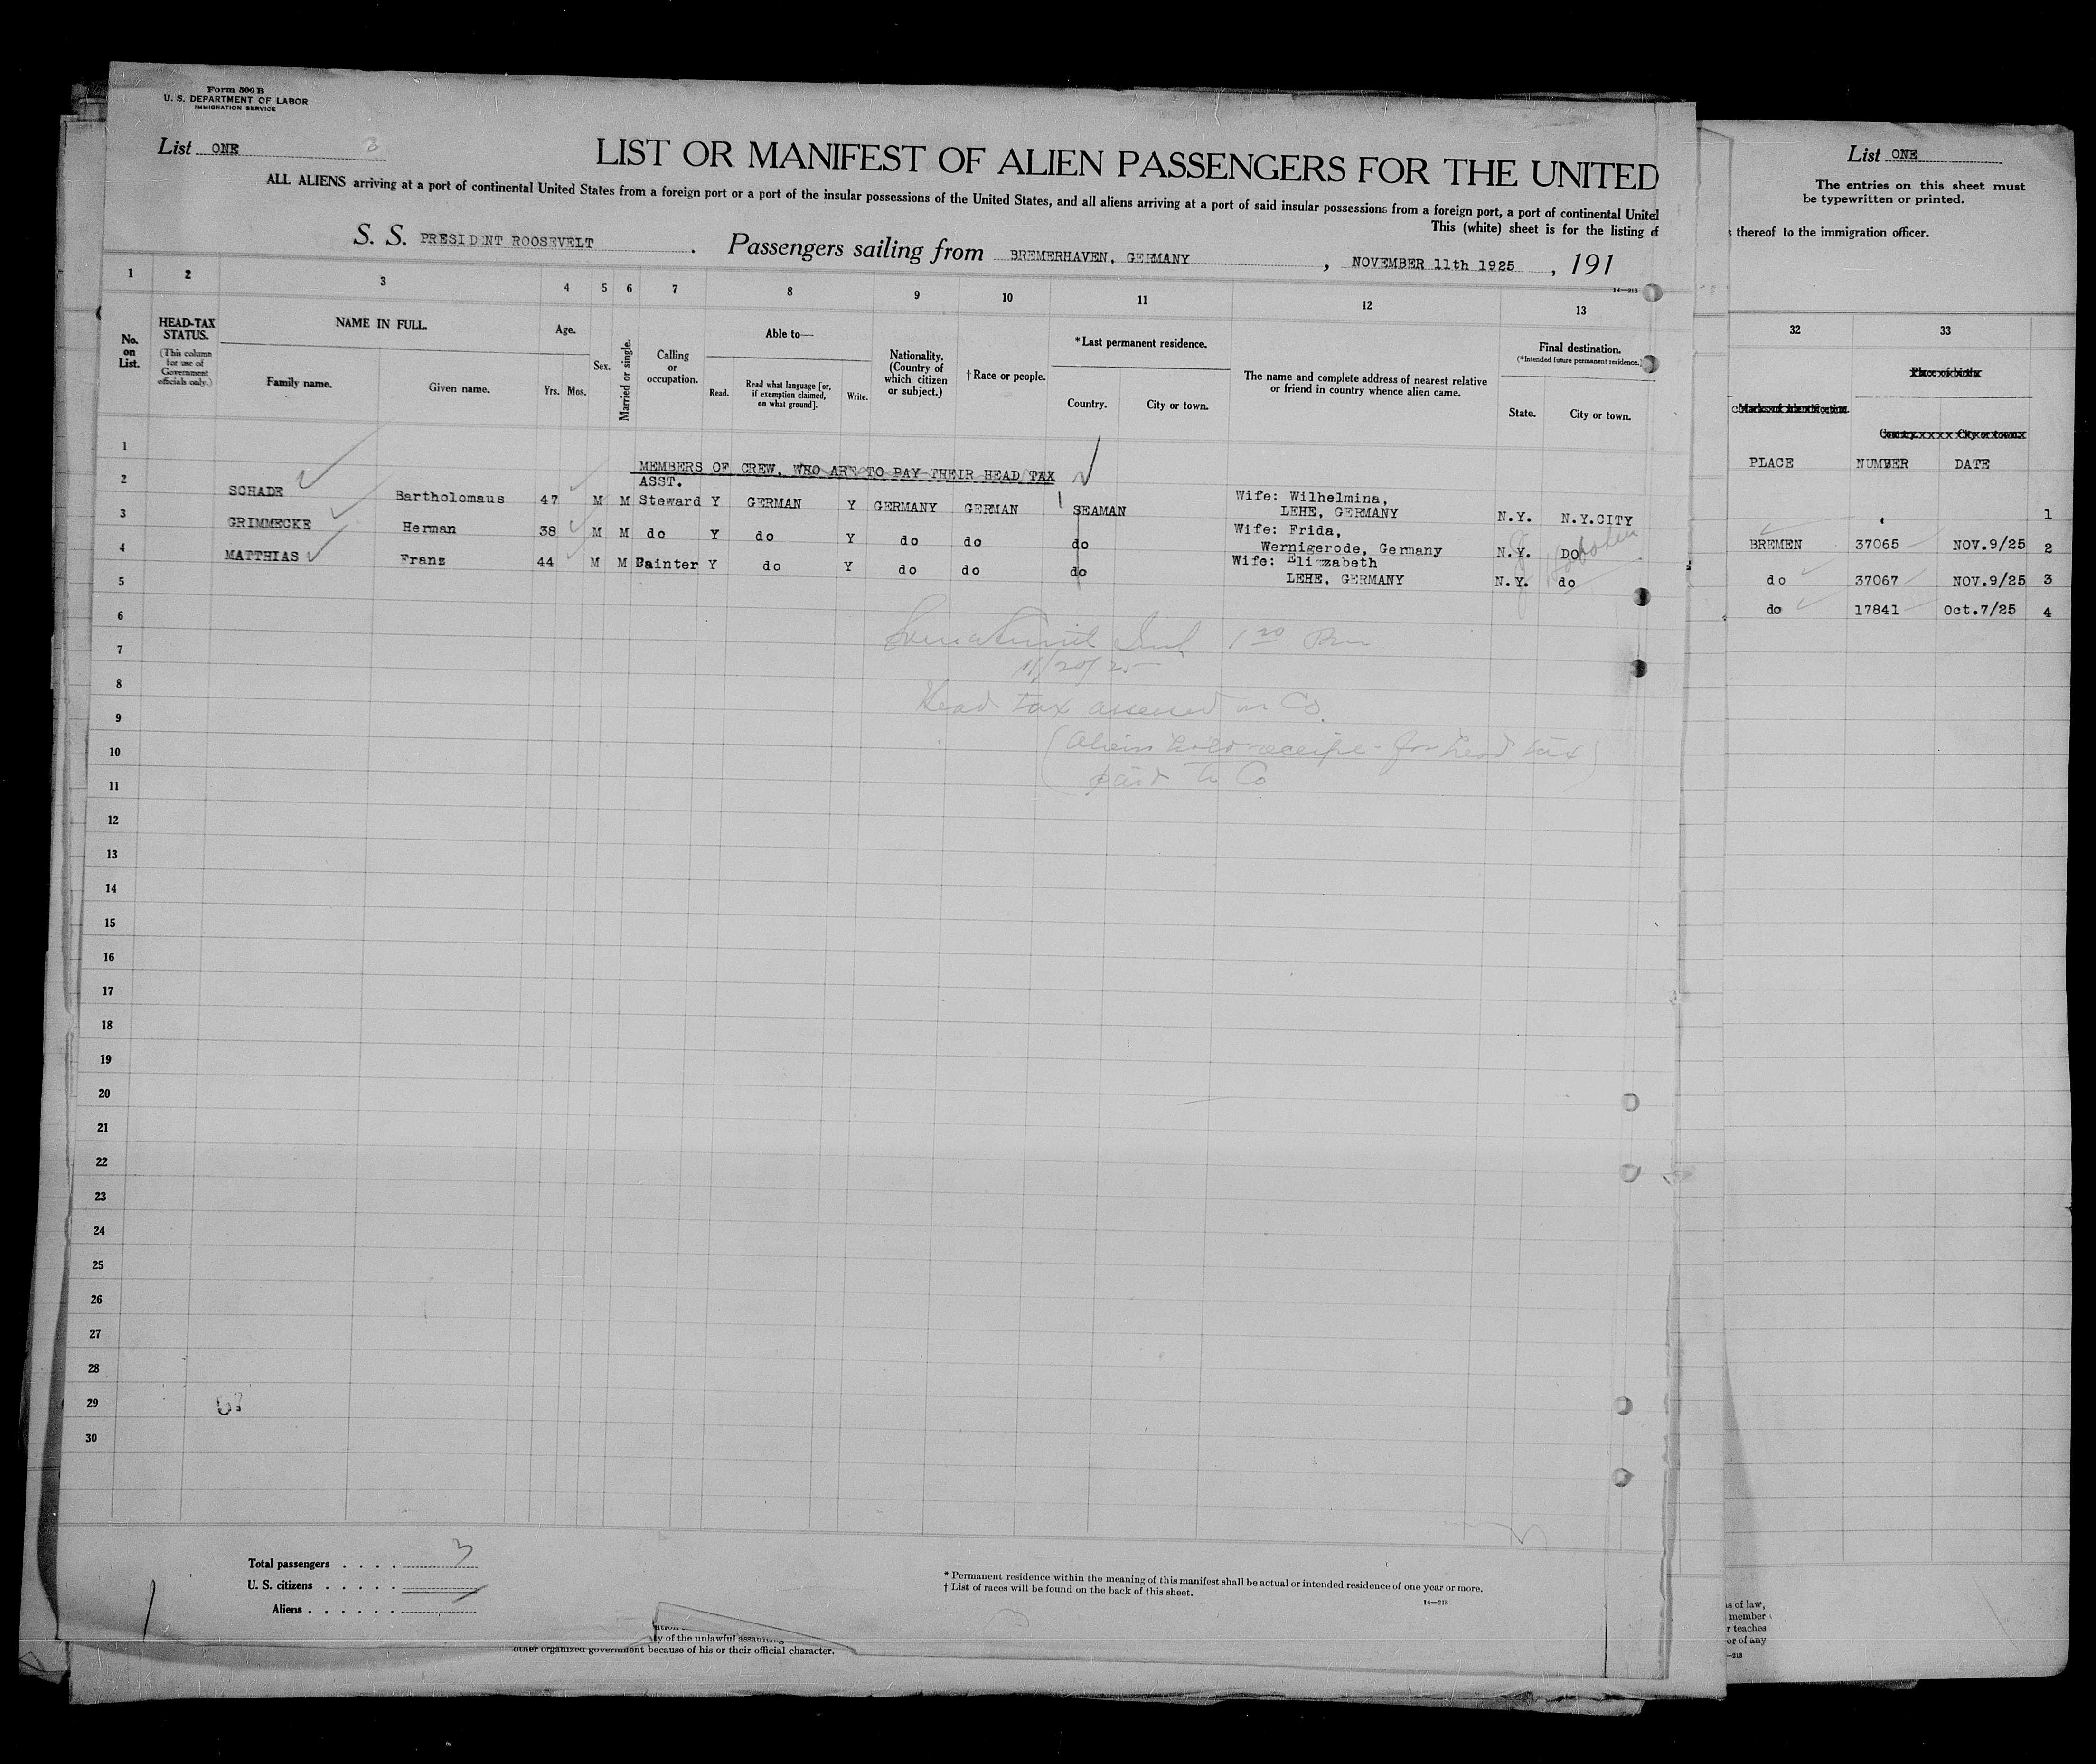 Form 500 B
U. S. DEPARTMENT OF LABOR
IMMIGRATION SERVICE
List ONE 3
LIST OR MANIFEST OF ALIEN PASSENGERS FOR THE UNITED
ALL ALIENS arriving at a port of continental United States from a foreign port or a port of the insular possessions of the United States, and all aliens arriving at a port of said insular possessions from a foreign port, a port of continental United
This (white) sheet is for the listing of
S. S. PRESIDENT ROOSEVELT . Passengers sailing from BREMERHAVEN, GERMANY , NOVEMBER 11th 1925 , 191
14—213
1 2 3 4 5 6 7 8 9 10 11 12 13
No. on List.
HEAD-TAX STATUS.
(This column for use of Government officials only.)
NAME IN FULL.
Family name. Given name.
Age.
Yrs. Mos.
Sex.
Married or single.
Calling or occupation.
Able to—
Read. Read what language [or, if exemption claimed, on what ground]. Write.
Nationality. (Country of which citizen or subject.)
†Race or people.
*Last permanent residence.
Country. City or town.
The name and complete address of nearest relative or friend in country whence alien came.
Final destination.
(*Intended future permanent residence.)
State. City or town.
1
MEMBERS OF CREW, WHO ARE TO PAY THEIR HEAD TAX
2 SCHADE Bartholomaus 47 M M ASST. Steward Y GERMAN Y GERMANY GERMAN SEAMAN Wife: Wilhelmina, LEHE, GERMANY N.Y. N.Y.CITY
3 GRIMMECKE Herman 38 M M do Y do Y do do do Wife: Frida, Wernigerode, Germany N.Y. DO Hoboken
4 MATTHIAS Franz 44 M M Painter Y do Y do do do Wife: Elizzabeth LEHE, GERMANY N.Y. do
5
6
7
11/20/25
8
Head tax assessed on Co.
9
10
(Aliens hold receipt for head tax
11
paid to Co
12
13
14
15
16
17
18
19
20
21
22
23
24
25
26
27
28
29
30
Total passengers . . . . 3
U. S. citizens . . . . .
Aliens . . . . . .
* Permanent residence within the meaning of this manifest shall be actual or intended residence of one year or more.
† List of races will be found on the back of this sheet.
14—213
ty of the unlawful
other organized government because of his or their official character.
List ONE
The entries on this sheet must
be typewritten or printed.
thereof to the immigration officer.
32 33
Place of birth
Marks of identification.
Country. City or town.
PLACE NUMBER DATE
1
BREMEN 37065 NOV.9/25 2
do 37067 NOV.9/25 3
do 17841 Oct.7/25 4
s of law,
member
r teaches
or of any
—213